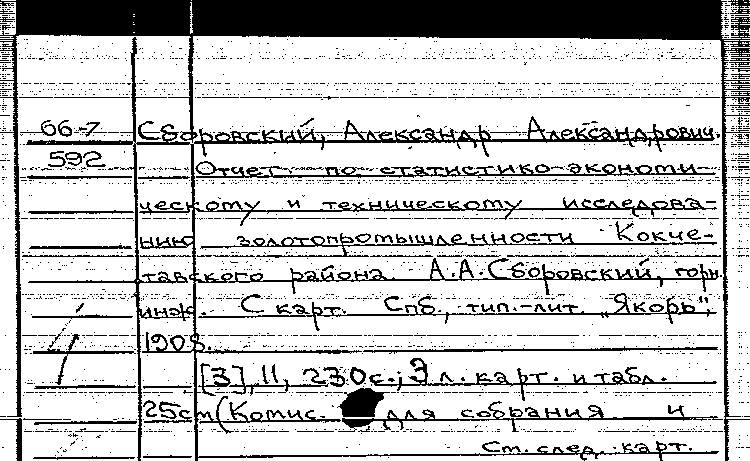 66-7 Сборовский, Александр Александрович.
592 Отчет по статистико-экономи-
ческому и техническому исследова-
нию золотопромышленности Кокче-
тавского района. А.А.Сборовский, горн.
инж. С карт. Спб., тип.-лит. „Якорь",
1908.
[3], II, 230с.; 3 л. карт. и табл.
25см (Комис. для собрания и
См. след. карт.